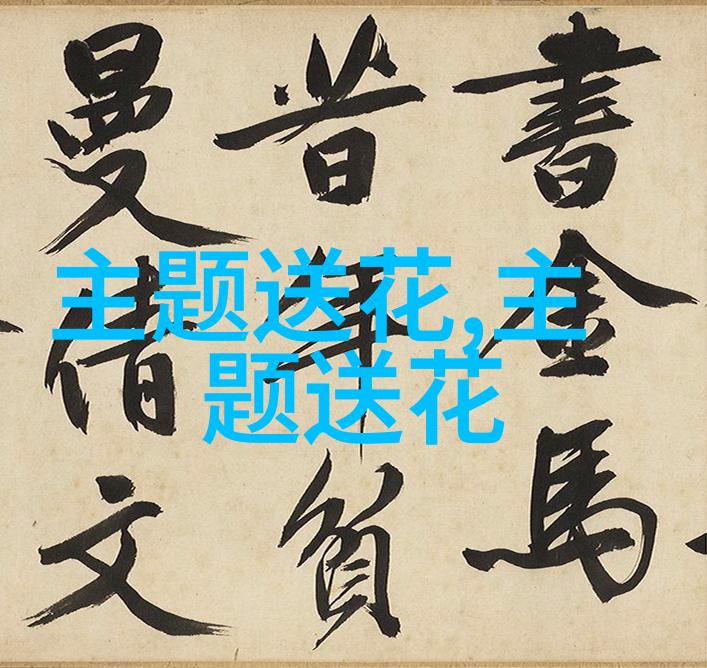 書金馬
昔年負
曼倩文
主题送花,主
题送花